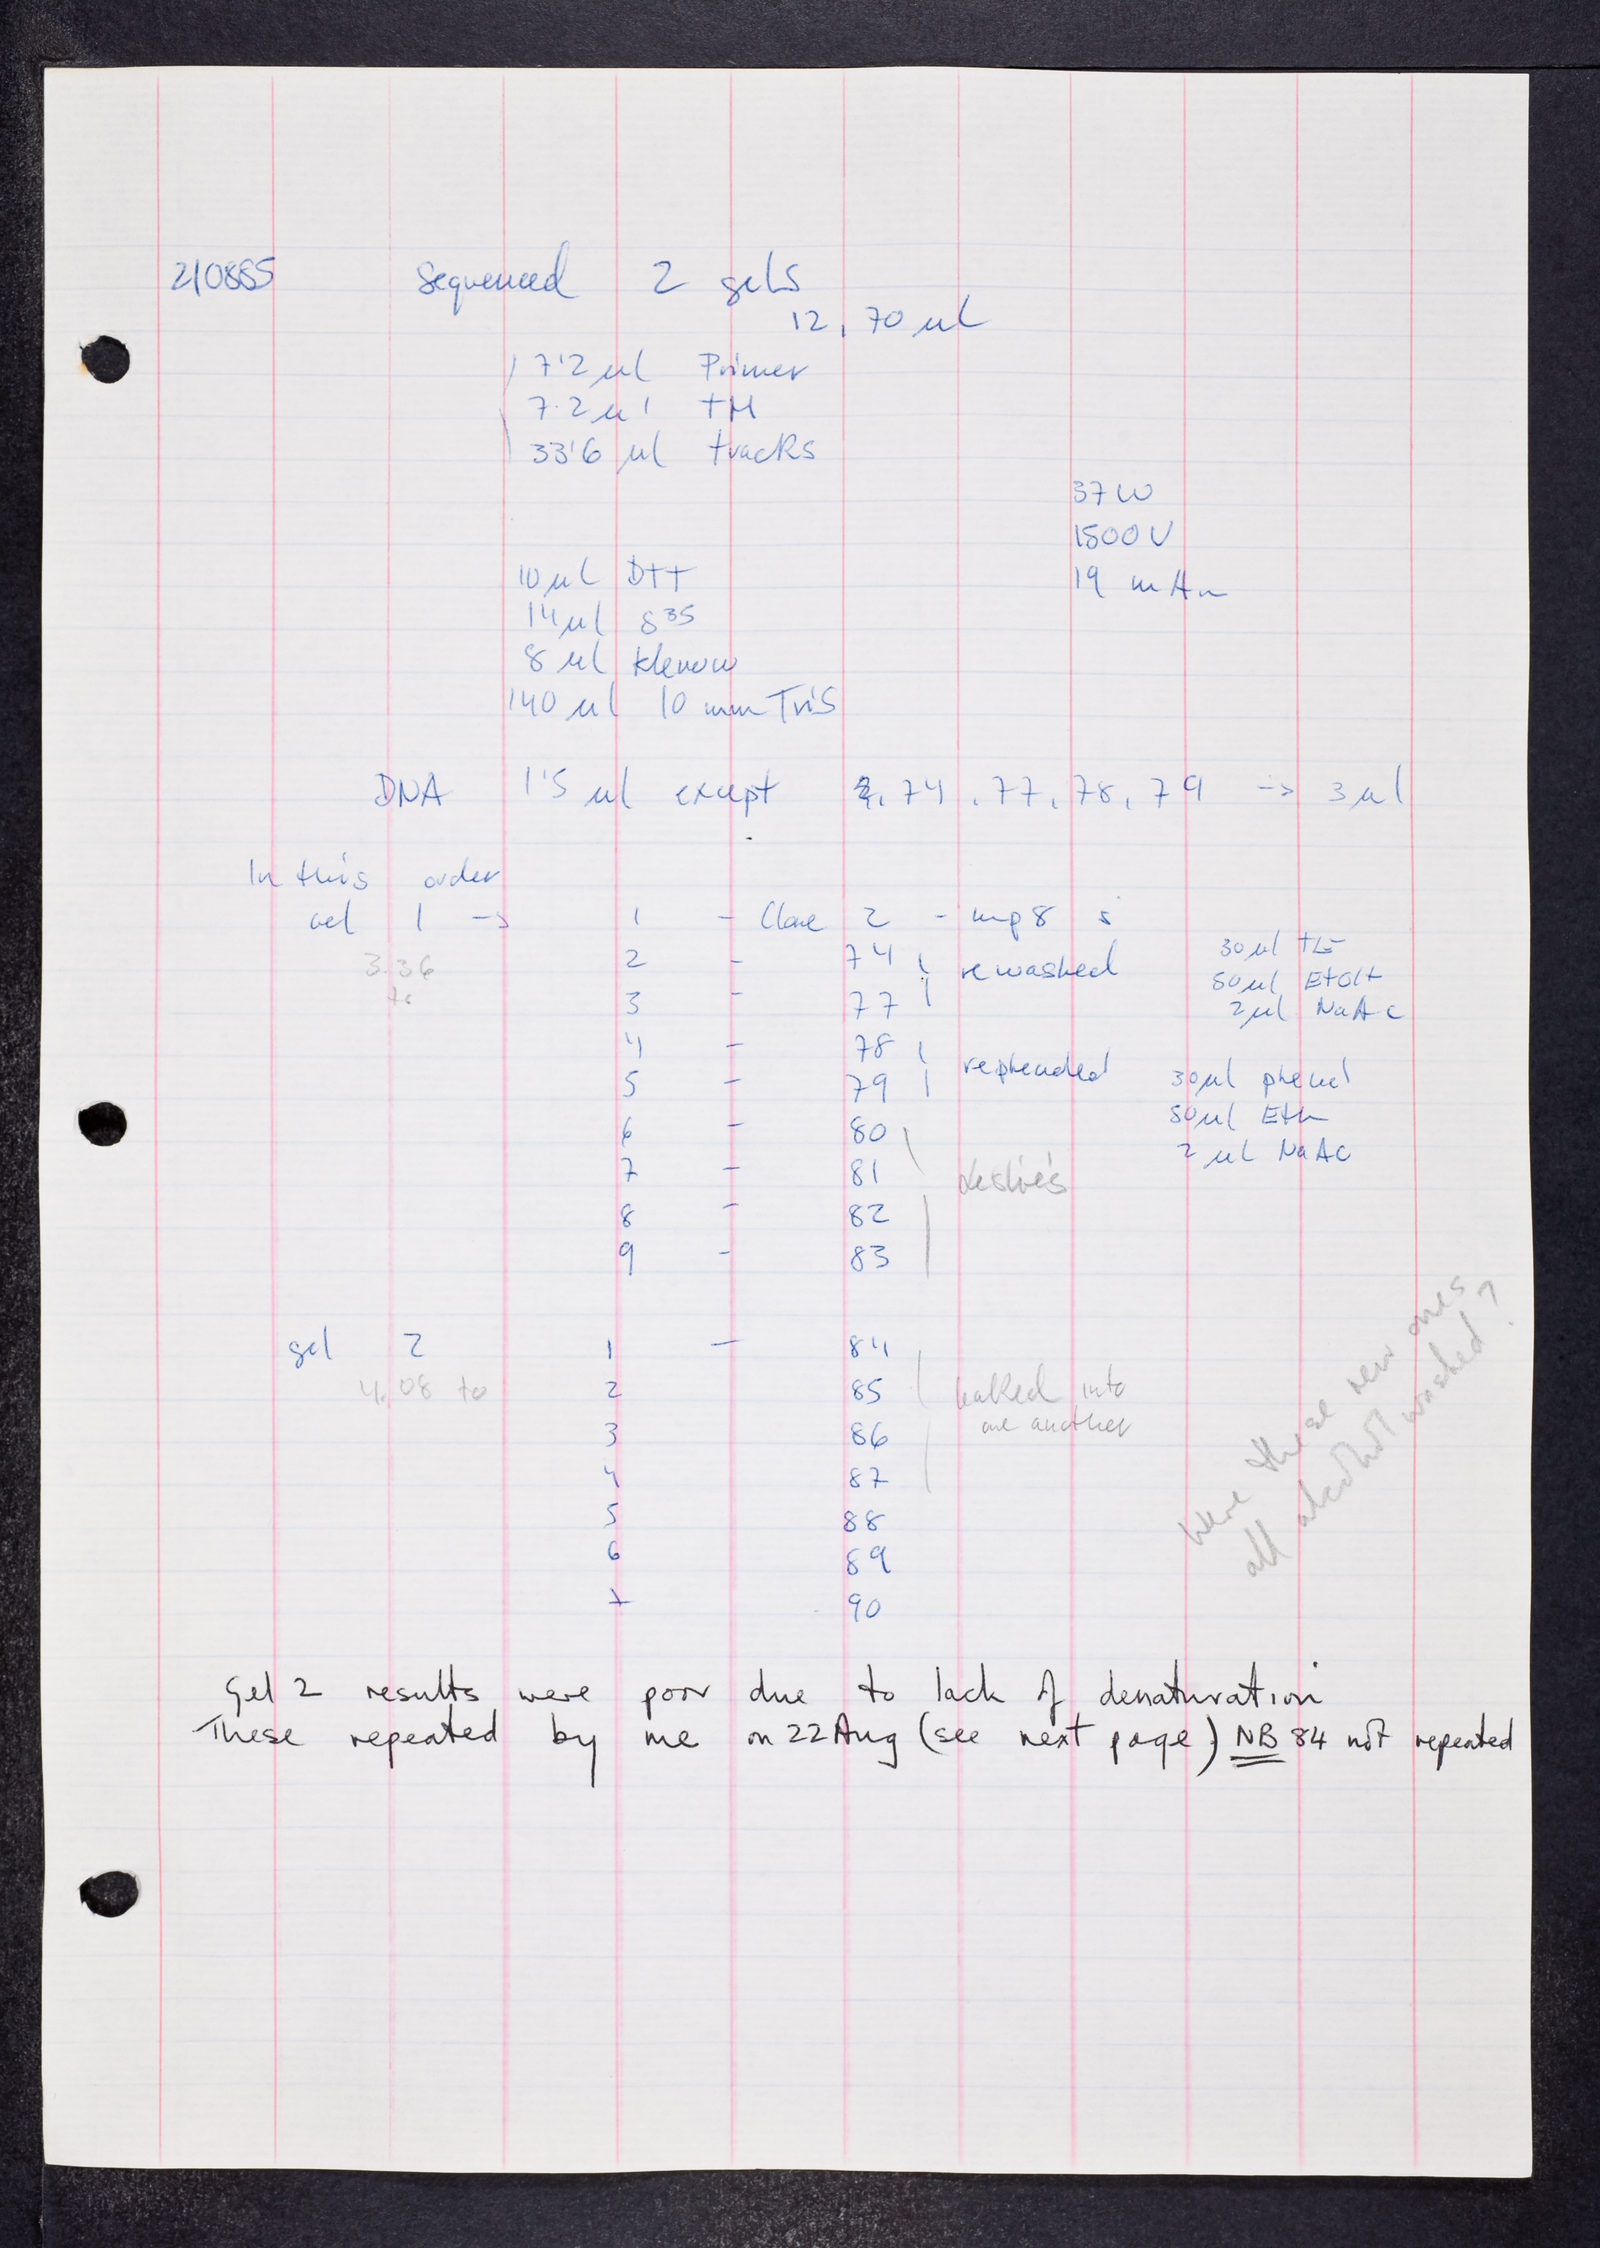 210885 Sequenced 2 gels
12, 70 ul
7'2 ul Primer
7.2 ul TM
33'6 ul tracks
37 W
1500 V
10 ul DTT
19 mA
14 ul S35
8 ul Klenow
140 ul 10 mm Tris
DNA 1'5 ul except 2, 74, 77, 78, 79 -> 3 ul
In this order
gel 1 -> 1 - Clone 2 - mp8 s
3.36 2 - 74 rewashed 30 ul TE
to 3 - 77 50 ul EtOH
2 ul NaAc
4 - 78 rephenoled
5 - 79 30 ul phenol
6 - 80 50 ul Eth
7 - 81 Leslie's 2 ul NaAc
8 - 82
9 - 83
gel 2 1 - 84
4.08 to 2 85 leaked into
3 86 one another
4 87
5 88
6 89
7 90
Were these new ones
all alcohol washed?
Gel 2 results were poor due to lack of denaturation
These repeated by me on 22 Aug (see next page) NB 84 not repeated